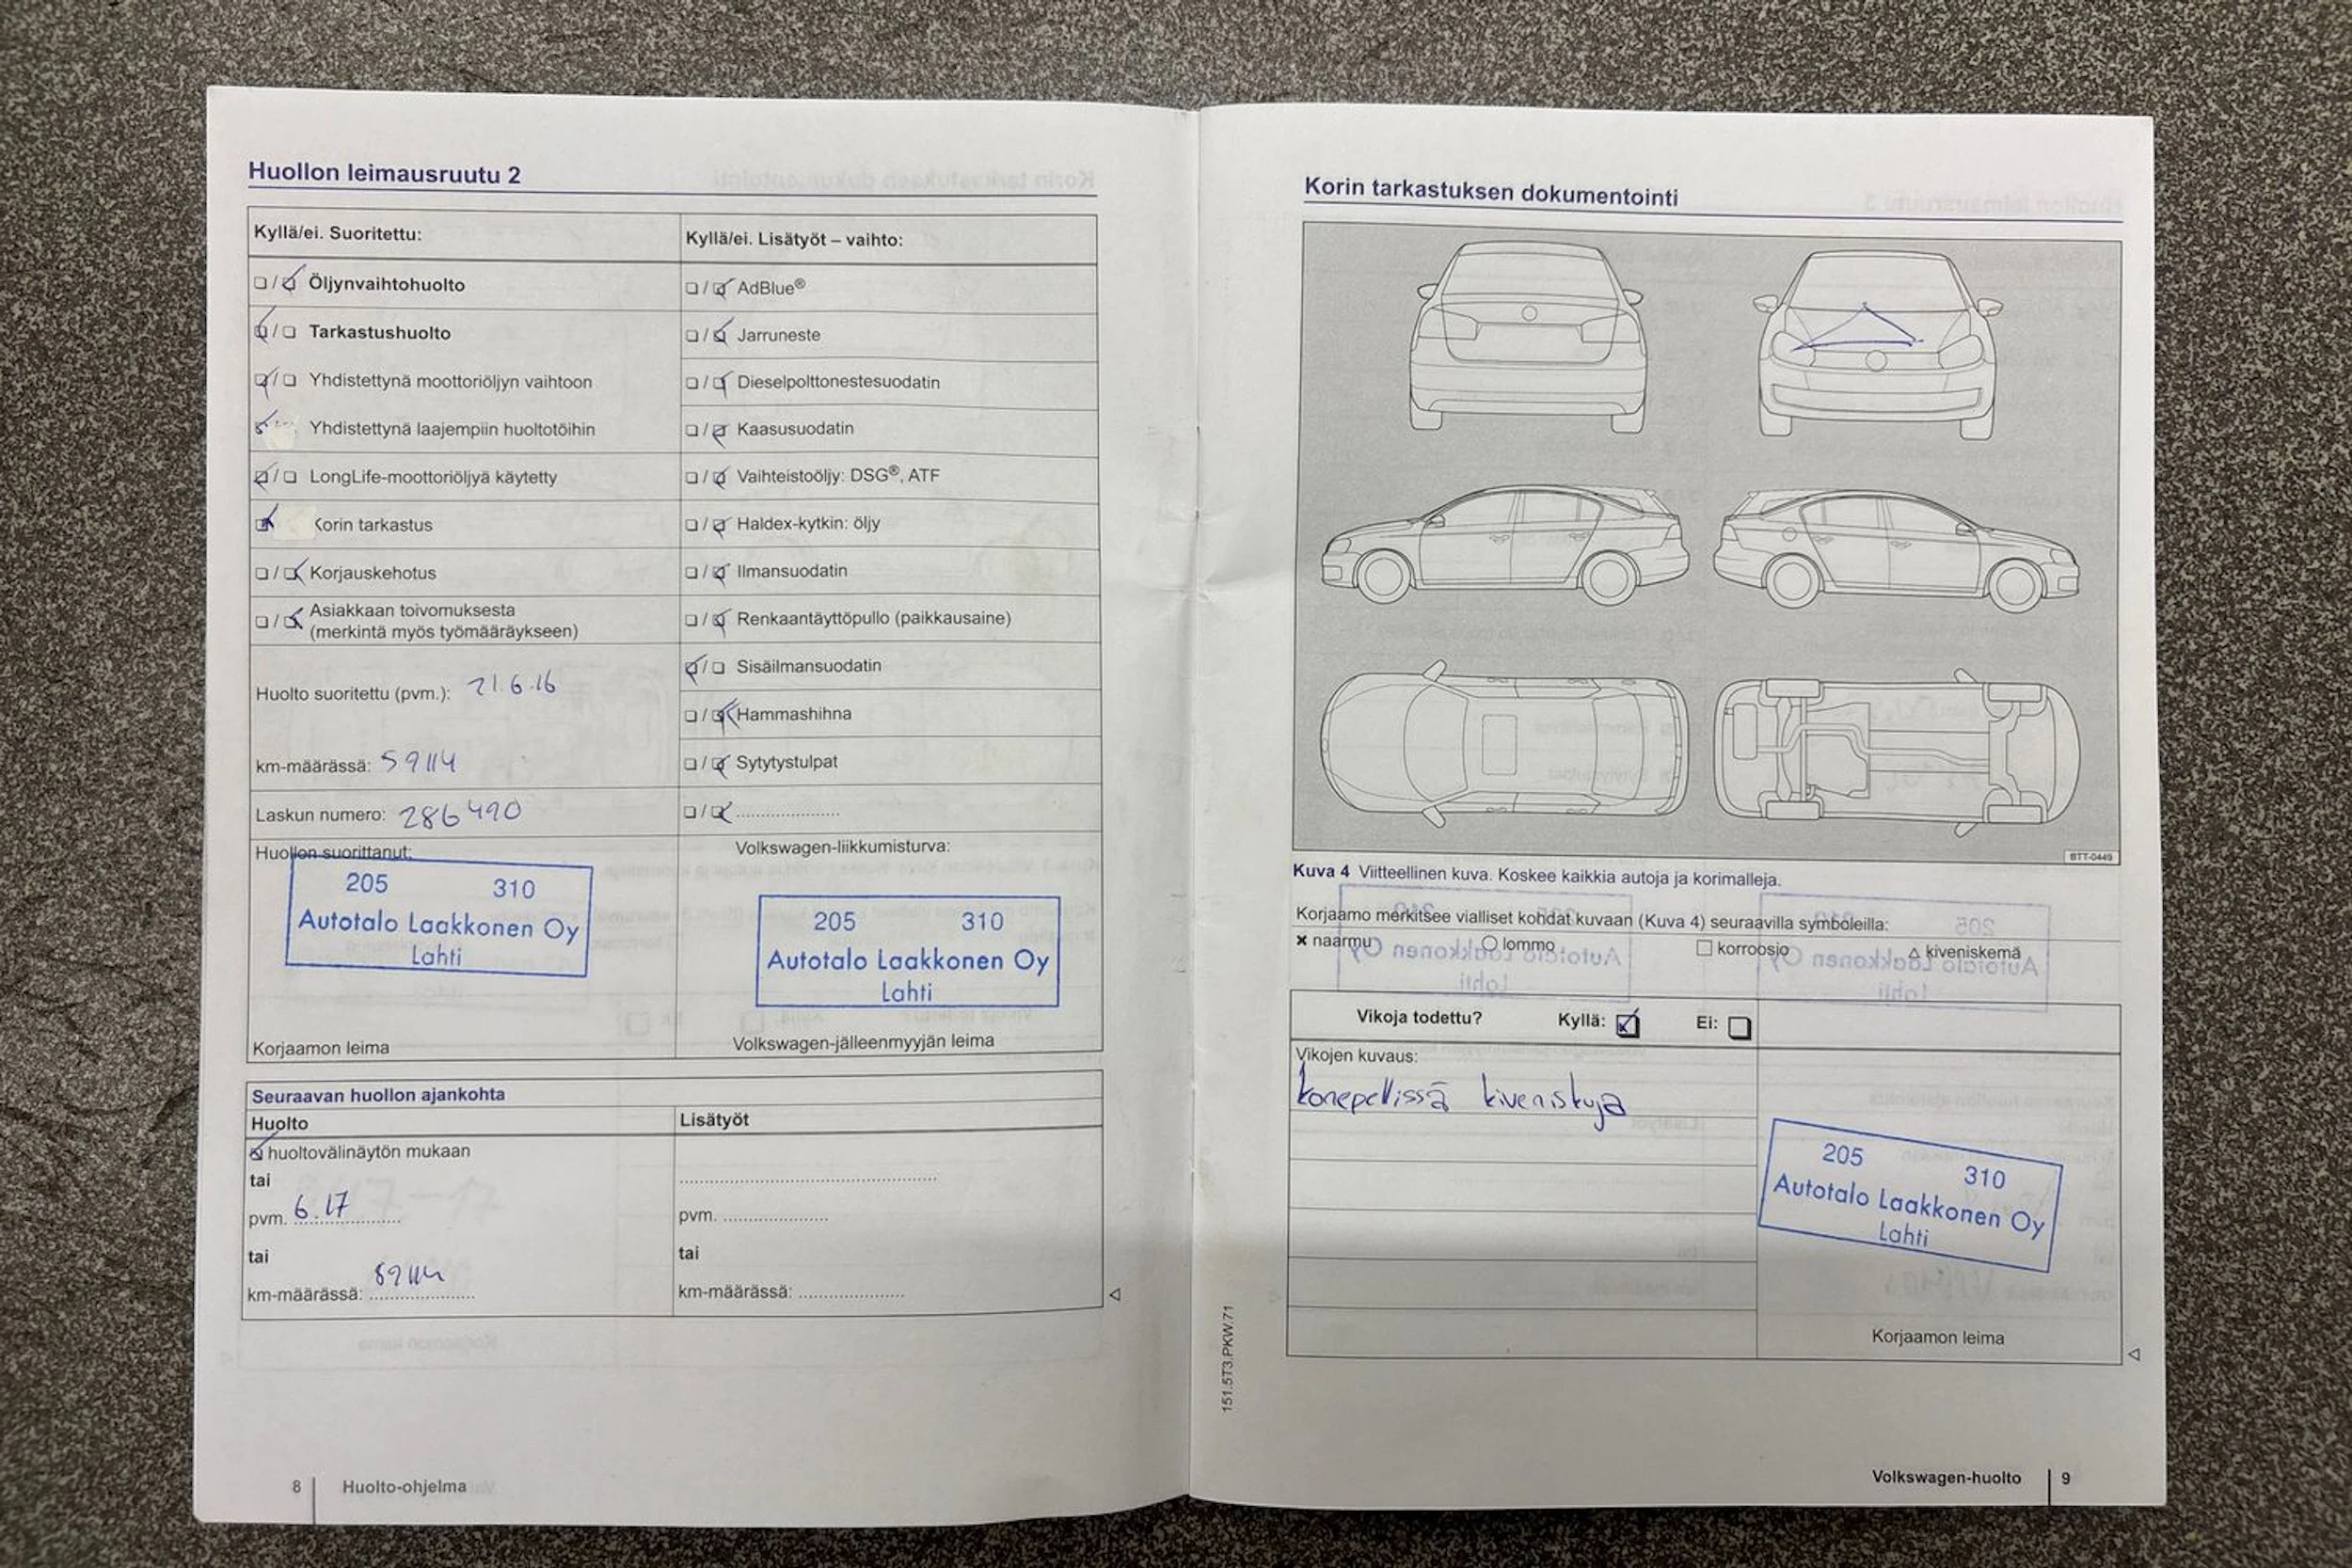 Huollon leimausruutu 2
Kyllä/ei. Suoritettu:
Öljynvaihtohuolto
Tarkastushuolto
Yhdistettynä moottoriöljyn vaihtoon
Yhdistettynä laajempiin huoltotöihin
LongLife-moottoriöljyä käytetty
Korin tarkastus
Korjauskehotus
Asiakkaan toivomuksesta
(merkintä myös työmääräykseen)
Huolto suoritettu (pvm.): 21.6.16
km-määrässä: 59114
Laskun numero: 286490
Huollon suorittanut:
205 310
Autotalo Laakkonen Oy
Lahti
Korjaamon leima
Kyllä/ei. Lisätyöt – vaihto:
AdBlue®
Jarruneste
Dieselpolttonestesuodatin
Kaasusuodatin
Vaihteistoöljy: DSG®, ATF
Haldex-kytkin: öljy
Ilmansuodatin
Renkaantäyttöpullo (paikkausaine)
Sisäilmansuodatin
Hammashihna
Sytytystulpat
Volkswagen-liikkumisturva:
205 310
Autotalo Laakkonen Oy
Lahti
Volkswagen-jälleenmyyjän leima
Seuraavan huollon ajankohta
Huolto
huoltovälinäytön mukaan
tai
pvm. 6.17
tai
km-määrässä: 89114
Lisätyöt
pvm.
tai
km-määrässä:
8 Huolto-ohjelma
Korin tarkastuksen dokumentointi
BTT-0449
Kuva 4 Viitteellinen kuva. Koskee kaikkia autoja ja korimalleja.
Korjaamo merkitsee vialliset kohdat kuvaan (Kuva 4) seuraavilla symboleilla:
× naarmu ○ lommo □ korroosio △ kiveniskemä
Vikoja todettu? Kyllä: Ei:
Vikojen kuvaus:
konepellissä kiveniskuja
205 310
Autotalo Laakkonen Oy
Lahti
Korjaamon leima
151.5T3.PKW.71
Volkswagen-huolto 9